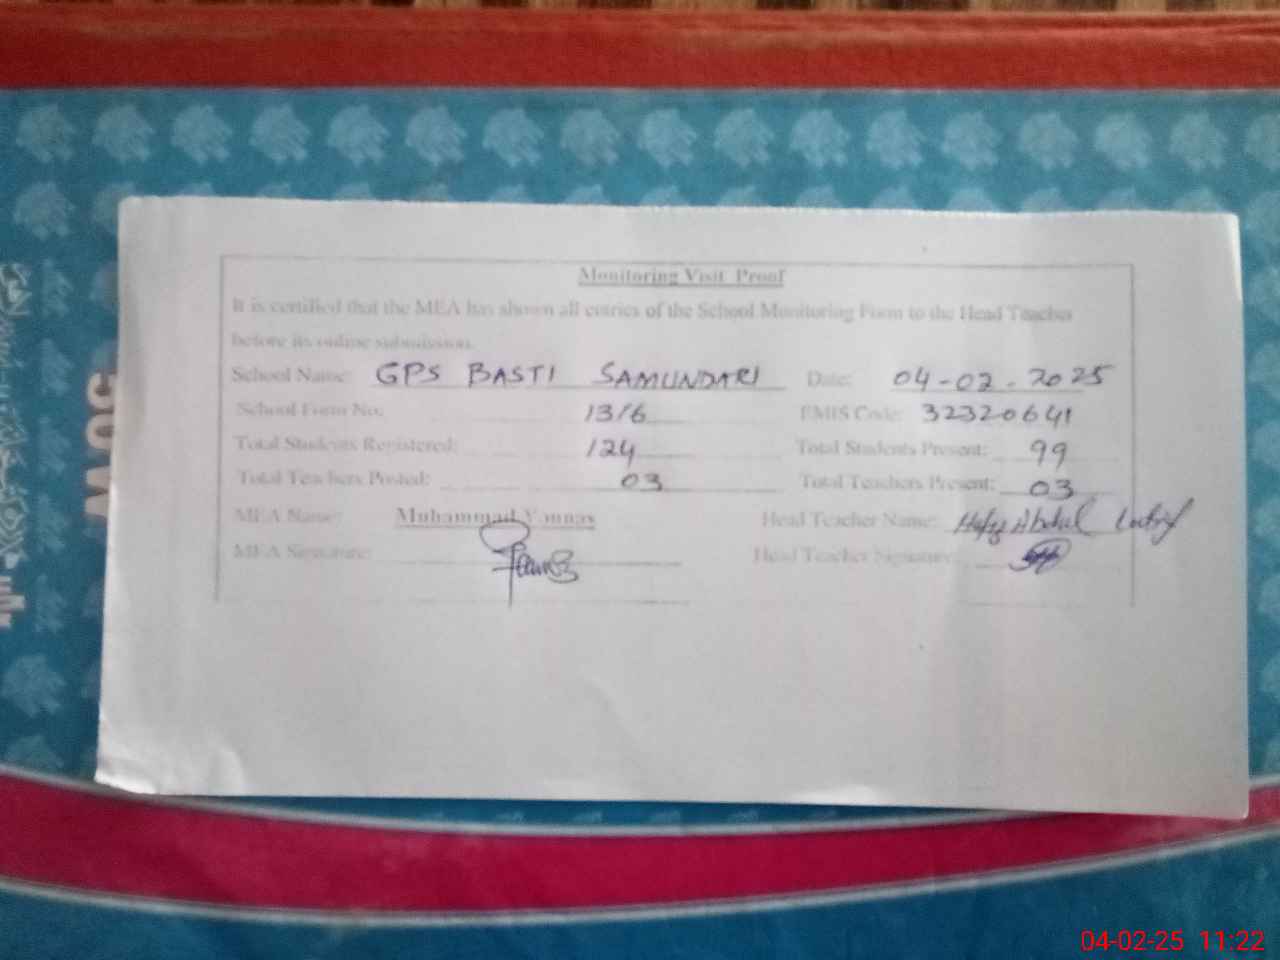 Monitoring Visit Proof
It is certified that the MEA has shown all entries of the School Monitoring Form to the Head Teacher
before its online submission.
School Name: GPS BASTI SAMUNDARI Date: 04-02-2025
School Form No: 1316 EMIS Code: 32320641
Total Students Registered: 124 Total Students Present: 99
Total Teachers Posted: 03 Total Teachers Present: 03
MEA Name: Muhammad Younas Head Teacher Name: Hafiz Abdul Latif
MEA Signature: Head Teacher Signature:
04-02-25 11:22